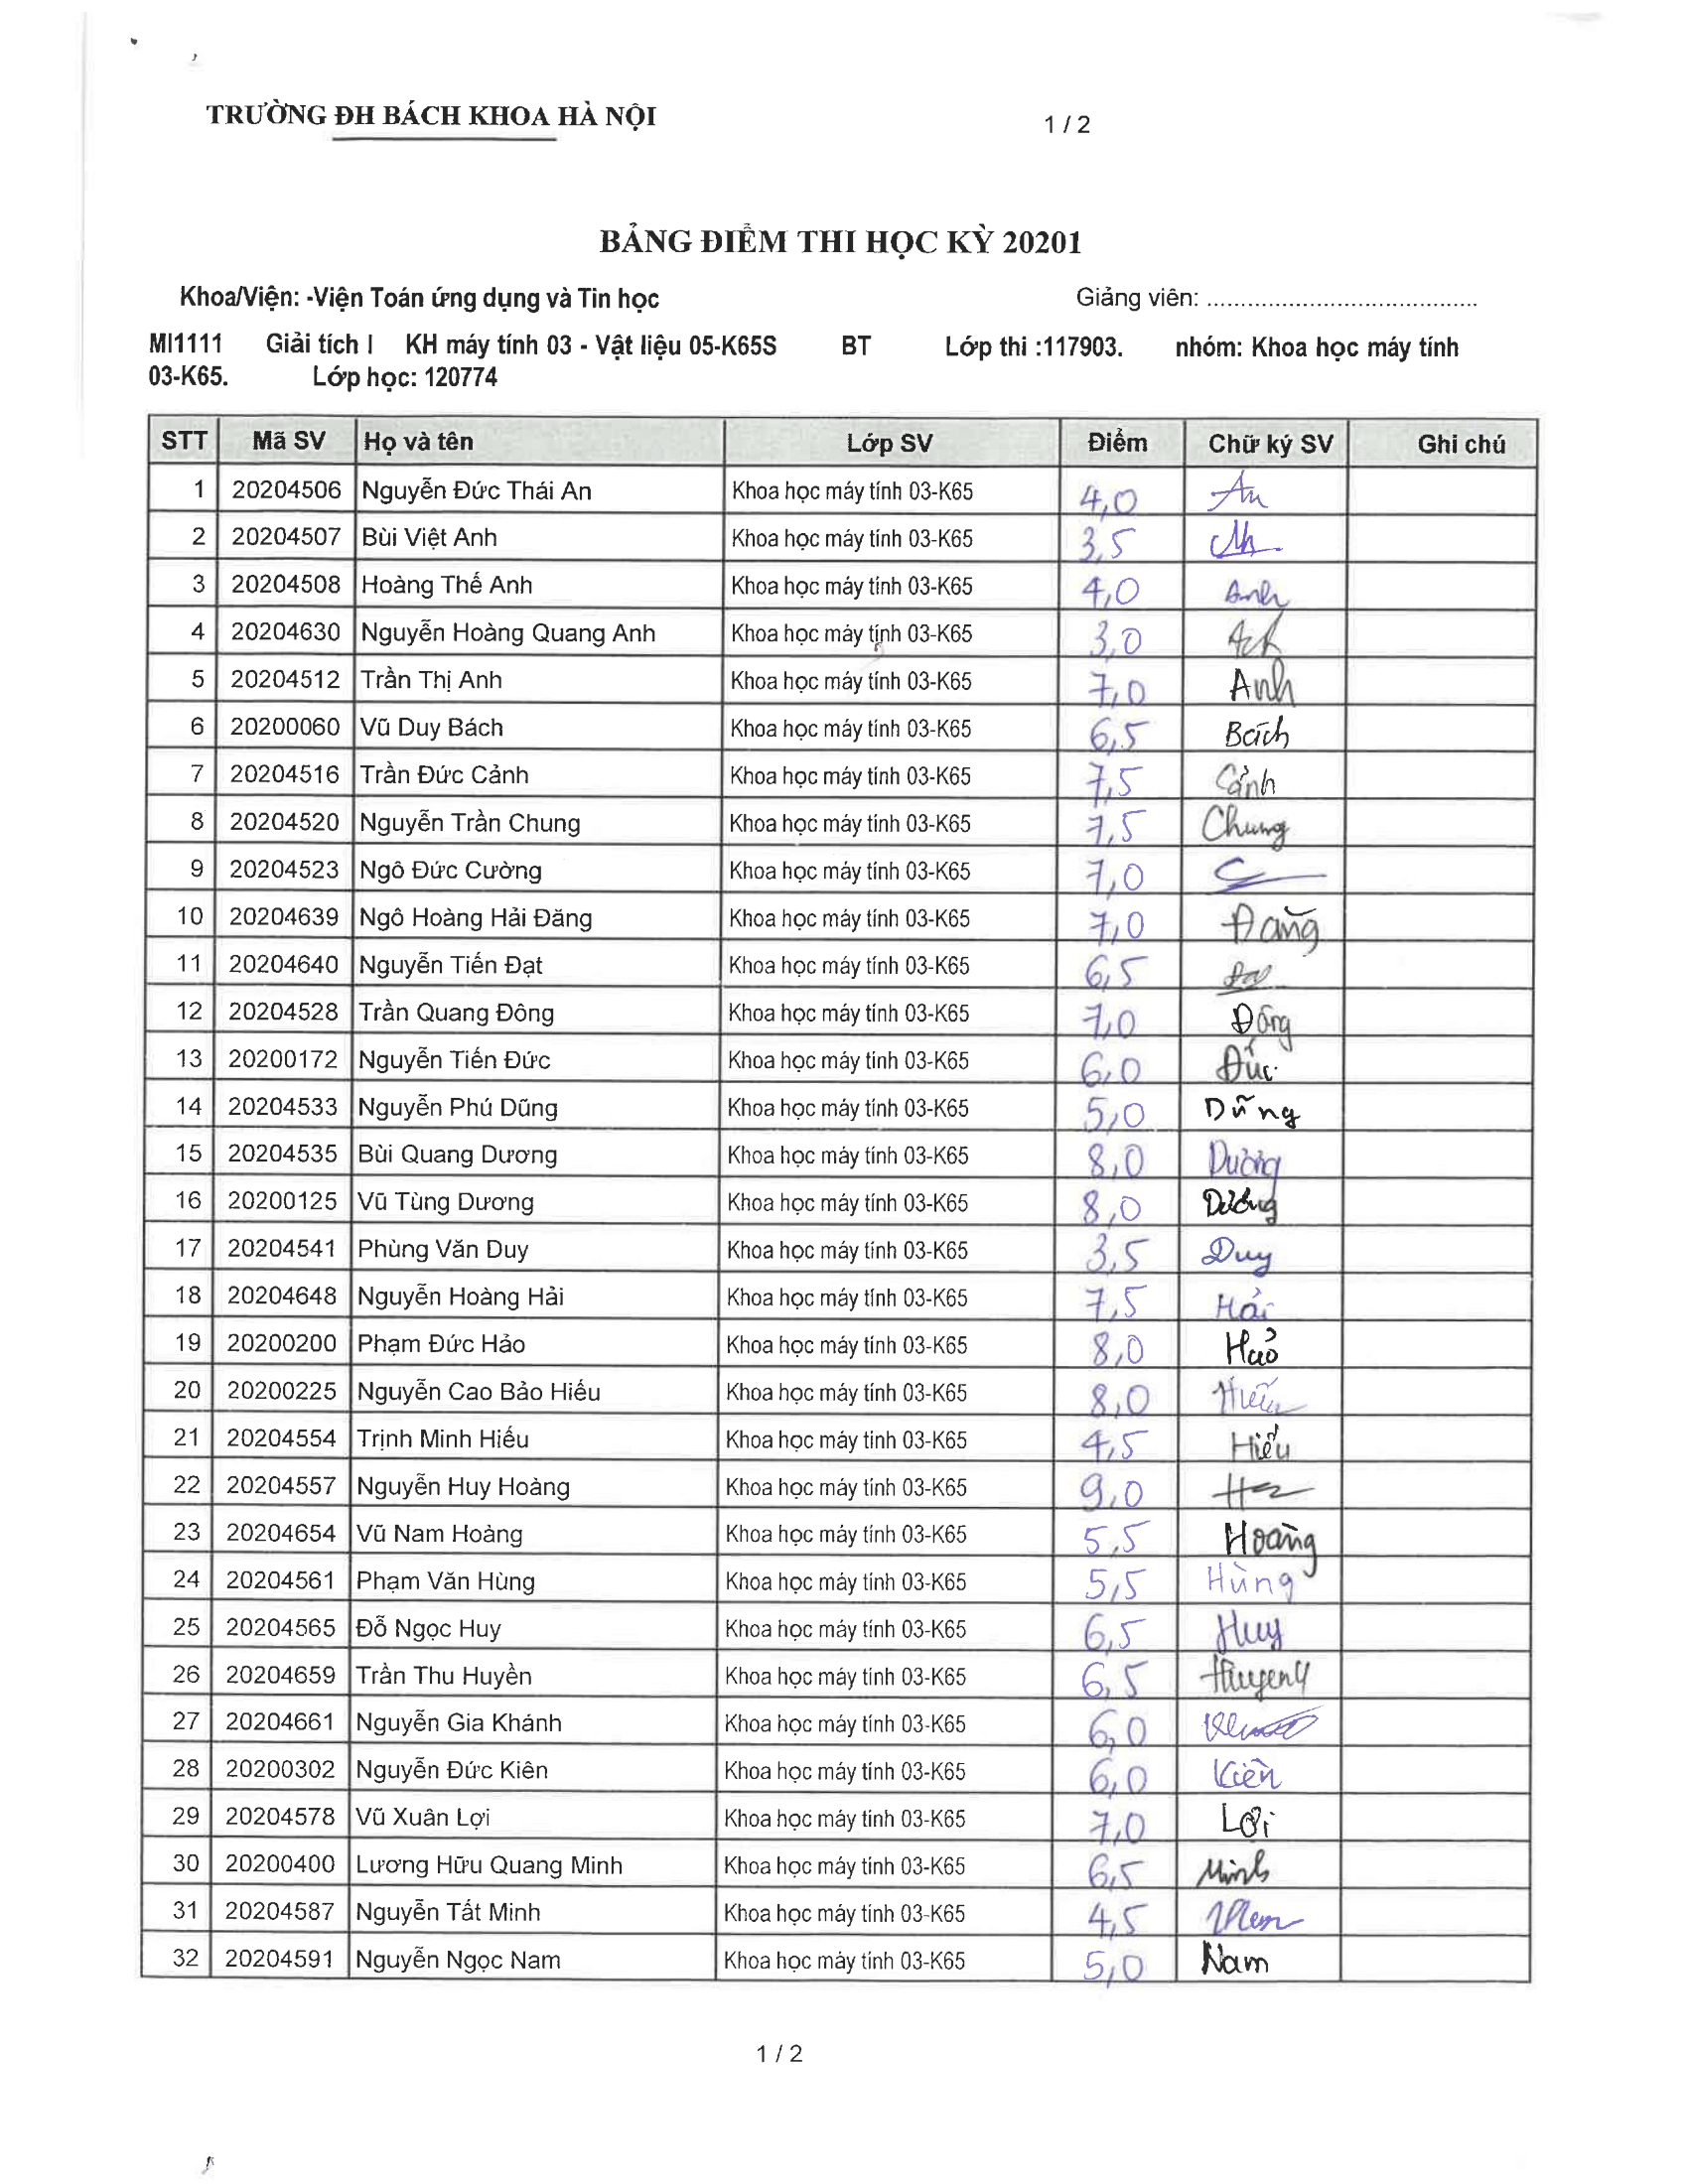 TRƯỜNG ĐH BÁCH KHOA HÀ NỘI
1 / 2
BẢNG ĐIỂM THI HỌC KỲ 20201
Khoa/Viện: -Viện Toán ứng dụng và Tin học Giảng viên: ........................................
MI1111 Giải tích I KH máy tính 03 - Vật liệu 05-K65S BT Lớp thi :117903. nhóm: Khoa học máy tính
03-K65. Lớp học: 120774
STT Mã SV Họ và tên Lớp SV Điểm Chữ ký SV Ghi chú
1 20204506 Nguyễn Đức Thái An Khoa học máy tính 03-K65 4,0 An
2 20204507 Bùi Việt Anh Khoa học máy tính 03-K65 3,5
3 20204508 Hoàng Thế Anh Khoa học máy tính 03-K65 4,0 Anh
4 20204630 Nguyễn Hoàng Quang Anh Khoa học máy tính 03-K65 3,0
5 20204512 Trần Thị Anh Khoa học máy tính 03-K65 7,0 Anh
6 20200060 Vũ Duy Bách Khoa học máy tính 03-K65 6,5 Bách
7 20204516 Trần Đức Cảnh Khoa học máy tính 03-K65 7,5 Cảnh
8 20204520 Nguyễn Trần Chung Khoa học máy tính 03-K65 7,5 Chung
9 20204523 Ngô Đức Cường Khoa học máy tính 03-K65 7,0
10 20204639 Ngô Hoàng Hải Đăng Khoa học máy tính 03-K65 7,0 Đăng
11 20204640 Nguyễn Tiến Đạt Khoa học máy tính 03-K65 6,5
12 20204528 Trần Quang Đông Khoa học máy tính 03-K65 7,0 Đông
13 20200172 Nguyễn Tiến Đức Khoa học máy tính 03-K65 6,0 Đức
14 20204533 Nguyễn Phú Dũng Khoa học máy tính 03-K65 5,0 Dũng
15 20204535 Bùi Quang Dương Khoa học máy tính 03-K65 8,0 Dương
16 20200125 Vũ Tùng Dương Khoa học máy tính 03-K65 8,0 Dương
17 20204541 Phùng Văn Duy Khoa học máy tính 03-K65 3,5 Duy
18 20204648 Nguyễn Hoàng Hải Khoa học máy tính 03-K65 7,5 Hải
19 20200200 Phạm Đức Hảo Khoa học máy tính 03-K65 8,0 Hảo
20 20200225 Nguyễn Cao Bảo Hiếu Khoa học máy tính 03-K65 8,0 Hiếu
21 20204554 Trịnh Minh Hiếu Khoa học máy tính 03-K65 4,5 Hiếu
22 20204557 Nguyễn Huy Hoàng Khoa học máy tính 03-K65 9,0
23 20204654 Vũ Nam Hoàng Khoa học máy tính 03-K65 5,5 Hoàng
24 20204561 Phạm Văn Hùng Khoa học máy tính 03-K65 5,5 Hùng
25 20204565 Đỗ Ngọc Huy Khoa học máy tính 03-K65 6,5 Huy
26 20204659 Trần Thu Huyền Khoa học máy tính 03-K65 6,5
27 20204661 Nguyễn Gia Khánh Khoa học máy tính 03-K65 6,0
28 20200302 Nguyễn Đức Kiên Khoa học máy tính 03-K65 6,0 Kiên
29 20204578 Vũ Xuân Lợi Khoa học máy tính 03-K65 7,0 Lợi
30 20200400 Lương Hữu Quang Minh Khoa học máy tính 03-K65 6,5 Minh
31 20204587 Nguyễn Tất Minh Khoa học máy tính 03-K65 4,5
32 20204591 Nguyễn Ngọc Nam Khoa học máy tính 03-K65 5,0 Nam
1 / 2